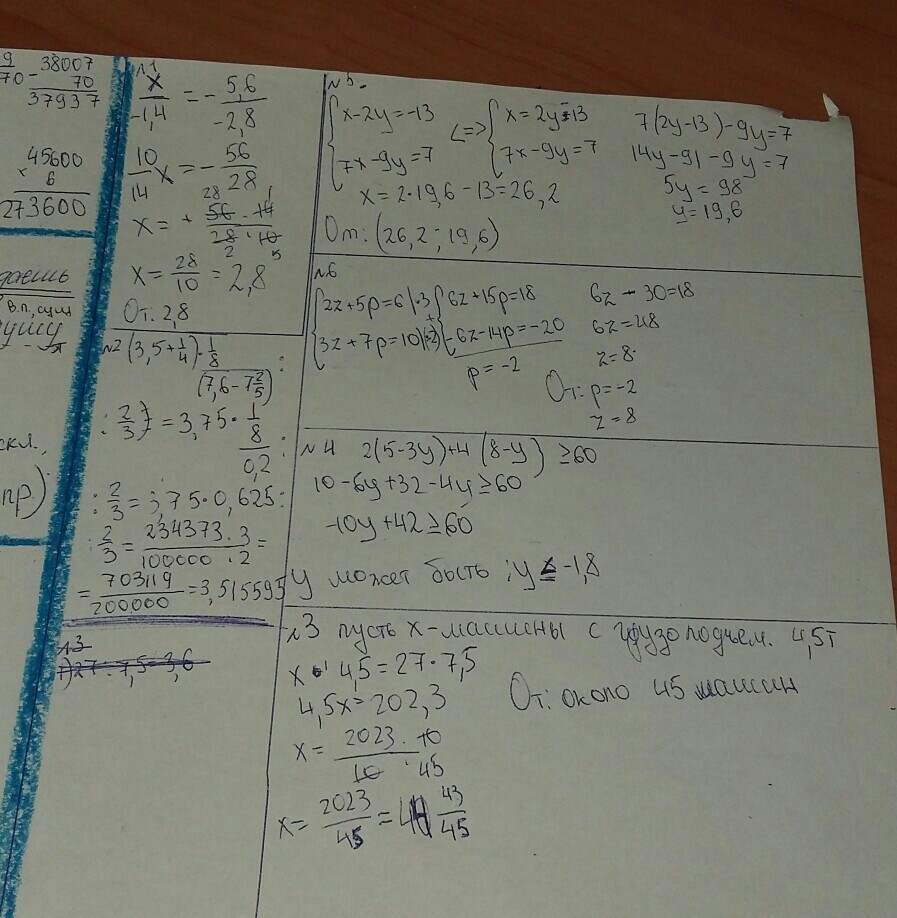 9
70
38007
- 70
37937
45600
× 6
273600
даешь
В.п., сущ
скл.,
пр.)
№1
x/-1,4 = - 5,6/-2,8
10/14 x = - 56/28
28 1
x = + 56 · 14 / 28 · 10
2 5
x = 28/10 = 2,8
От: 2,8
№2 (3,5 + 1/4) · 1/8 / (7,6 - 7 2/5) :
: 2/3) = 3,75 · 1/8 / 0,2 :
: 2/3 = 3,75 · 0,625 :
: 2/3 = 234373 · 3 / 100000 · 2 =
= 703119/200000 = 3,515595
№3
1) 27 : 7,5 = 3,6
№5.
{x - 2y = -13 <=> {x = 2y - 13
{7x - 9y = 7 {7x - 9y = 7
x = 2 · 19,6 - 13 = 26,2
От: (26,2 ; 19,6)
7(2y - 13) - 9y = 7
14y - 91 - 9y = 7
5y = 98
y = 19,6
№6
{2z + 5p = 6 |·3 {6z + 15p = 18
{3z + 7p = 10 |(-2) + -6z - 14p = -20
p = -2
6z - 30 = 18
6z = 48
z = 8
От: p = -2
z = 8
№4 2(5 - 3y) + 4(8 - y) ≥ 60
10 - 6y + 32 - 4y ≥ 60
-10y + 42 ≥ 60
y может быть : y ≤ -1,8
№3 пусть x - машины с грузоподъем. 4,5т
x · 4,5 = 27 · 7,5
4,5x = 202,3
x = 2023 · 10 / 10 · 45
x = 2023/45 = 44 43/45
От: около 45 машин